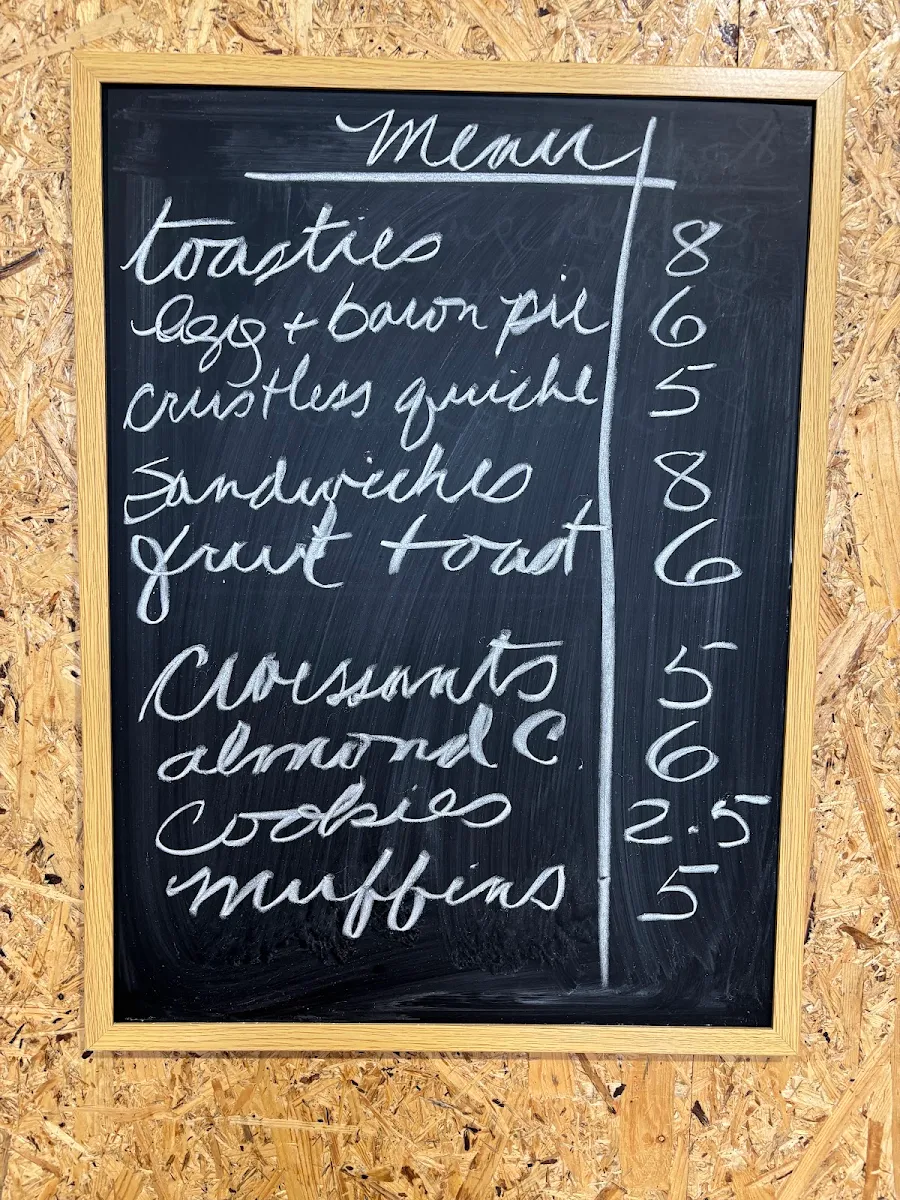 menu
toasties 8
egg + bacon pie 6
crustless quiche 5
sandwiches 8
fruit toast 6
Croissants 5
almond C. 6
Cookies 2.5
muffins 5